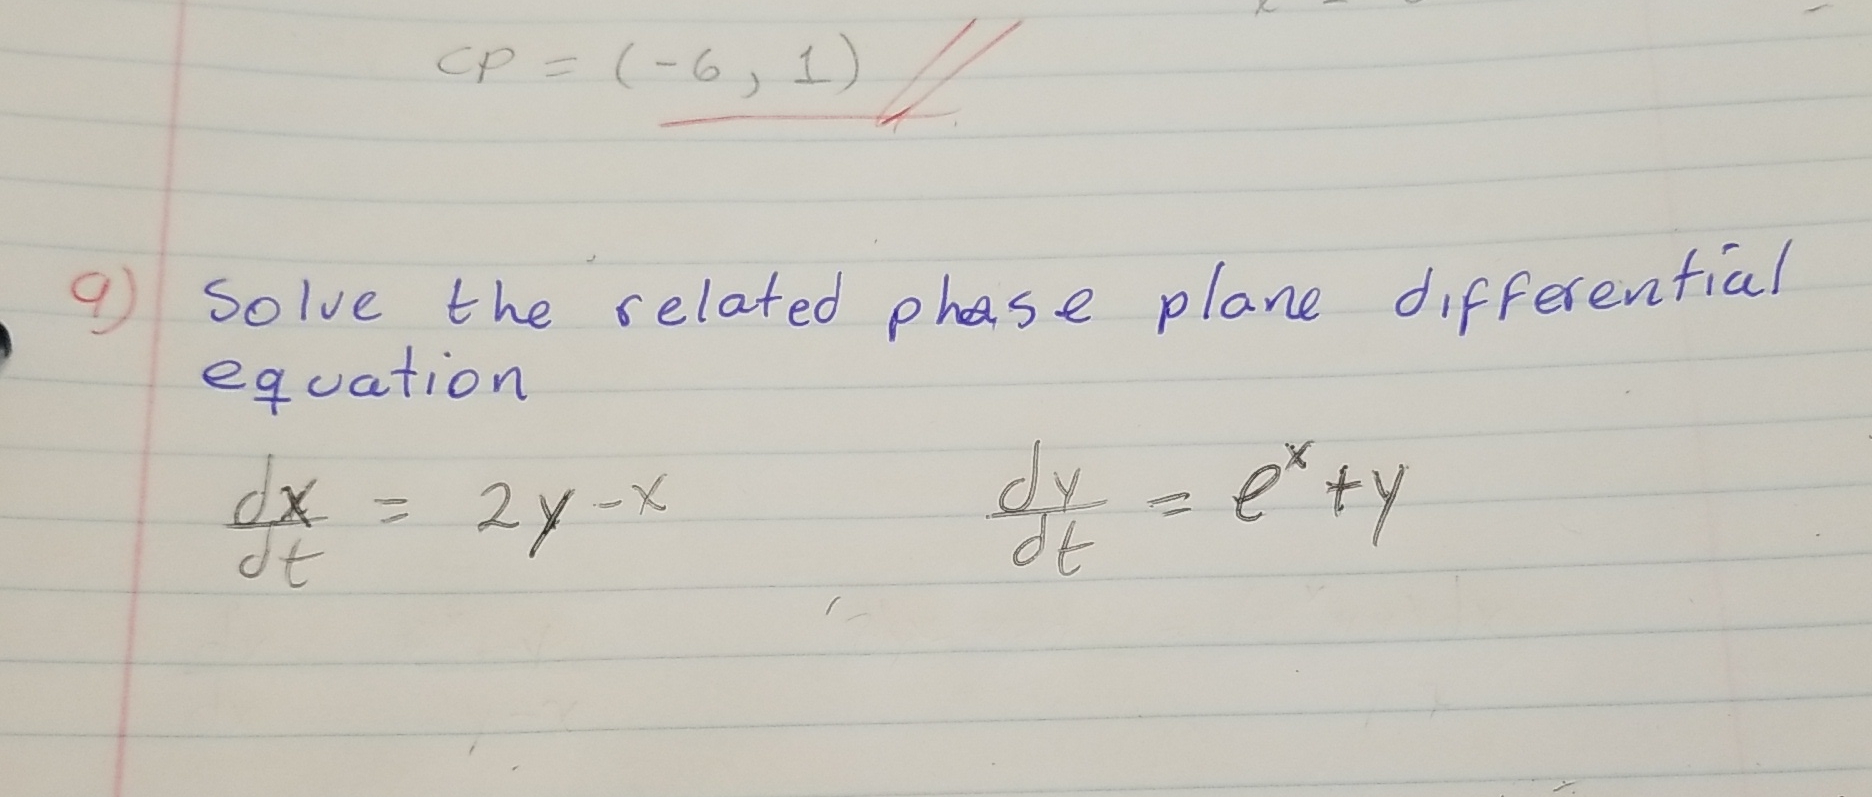 CP = (-6, 1)
9) Solve the related phase plane differential
equation
dx/dt = 2y-x dy/dt = eˣ+y